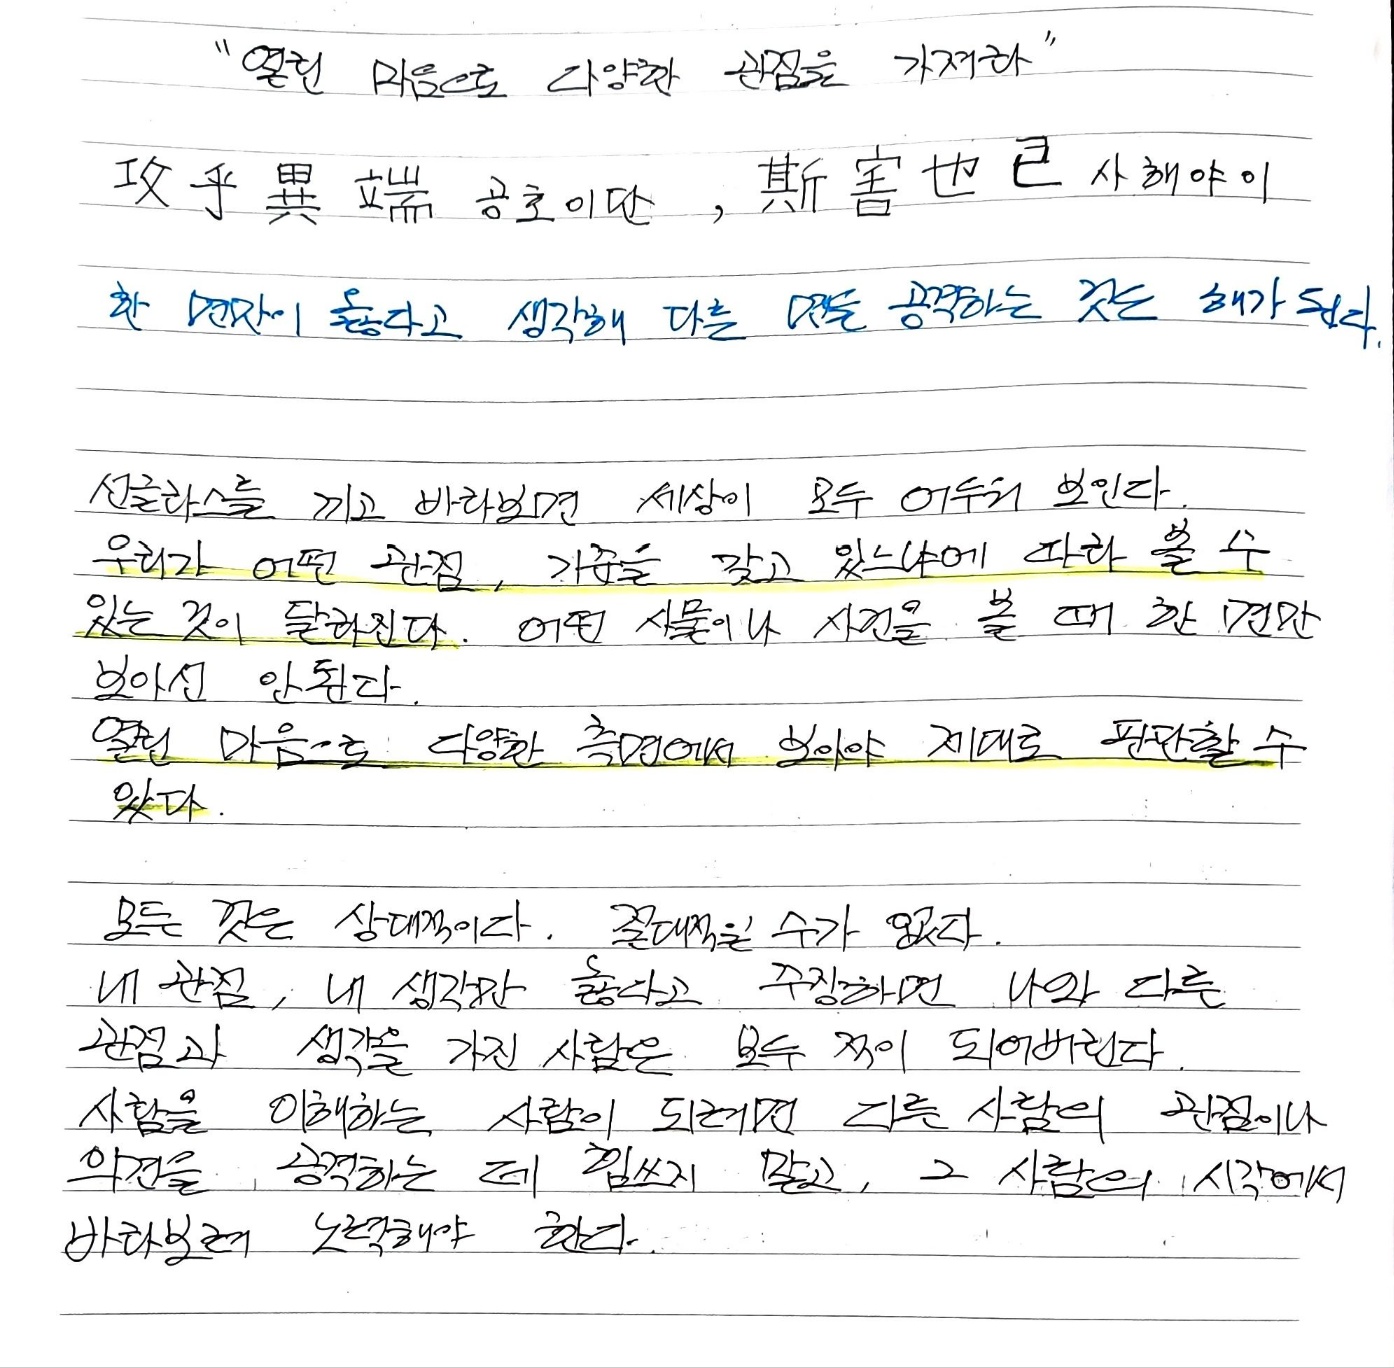 "열린 마음으로 다양한 관점을 가져라"
攻乎異端 공호이단, 斯害也已 사해야이
한 면만이 옳다고 생각해 다른 면을 공격하는 것은 해가 된다.
선글라스를 끼고 바라보면 세상이 모두 어두워 보인다.
우리가 어떤 관점, 기준을 갖고 있느냐에 따라 볼 수
있는 것이 달라진다. 어떤 사물이나 사건을 볼 때 한 면만
보아선 안된다.
열린 마음으로 다양한 측면에서 보아야 제대로 판단할 수
있다.
모든 것은 상대적이다. 절대적일 수가 없다.
내 관점, 내 생각만 옳다고 주장하면 나와 다른
관점과 생각을 가진 사람은 모두 적이 되어버린다.
사람을 이해하는 사람이 되려면 다른 사람의 관점이나
의견을 공격하는 데 힘쓰지 말고, 그 사람의 시각에서
바라보려 노력해야 한다.